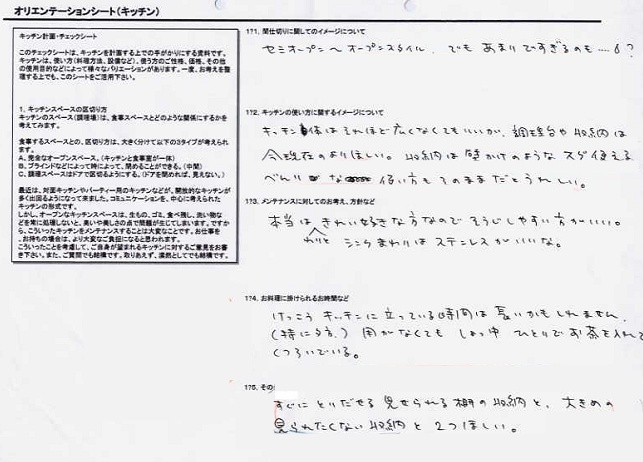 オリエンテーションシート(キッチン)
キッチン計画・チェックシート
このチェックシートは、キッチンを計画する上での手がかりにする資料です。
キッチンは、使い方(料理方法、設備など)、使う方のご性格、価格、その他
の使用目的などによって様々なバリエーションがあります。一度、お考えを整
理する上でも、このシートをご活用下さい。
1. キッチンスペースの区切り方
キッチンのスペース(調理場)は、食事スペースとどのような関係にするかを
考えてみます。
食事するスペースとの、区切り方は、大きく分けて以下の3タイプが考えられ
ます。
A. 完全なオープンスペース。(キッチンと食事室が一体)
B. ブラインドなどによって時によって、閉めることができる。(中間)
C. 調理スペースはドアで区切るようにする。(ドアを閉めれば、見えない。)
最近は、対面キッチンやパーティー用のキッチンなどが、開放的なキッチンが
多く出回るようになって来ました。コミュニケーションを、中心に考えられた
キッチンの形式です。
しかし、オープンなキッチンスペースは、生もの、ゴミ、食べ残し、洗い物な
どを常に処理しないと、臭いや美しさの点で問題が生じてしまいます。ですか
ら、こういったキッチンをメンテナンスすることは大変なことです。お仕事を
お持ちの場合は、より大変なご負担になると思われます。
こういったことを考慮して、ご自身が望まれるキッチンに対するご意見をお書
き下さい。また、ご質問でも結構です。取りあえず、漠然としてでも結構です。
171. 間仕切りに関してのイメージについて
セミオープン〜オープンスタイル。でも あまりですぎるのも……?
172. キッチンの使い方に関するイメージについて
キッチン自体はそれほど広くなくてもいいが、調理台や収納は
今現在のよりほしい。収納は壁かけのような スグ使える
べんりな 使い方も そのままだとうれしい。
173. メンテナンスに対してのお考え、方針など
本当は きれい好きな方なので そうじしやすい方がいい。
わりと シンクまわりは ステンレスがいいな。
174. お料理に掛けられるお時間など
けっこう キッチンに立っている時間は 長いかもしれません。
(特に夕方) 用がなくても しょっ中 ひとりでお茶を入れて
くつろいでいる。
175. その
すぐに とりだせる 見せられる棚の収納と、大きめの
見られたくない収納と 2つほしい。